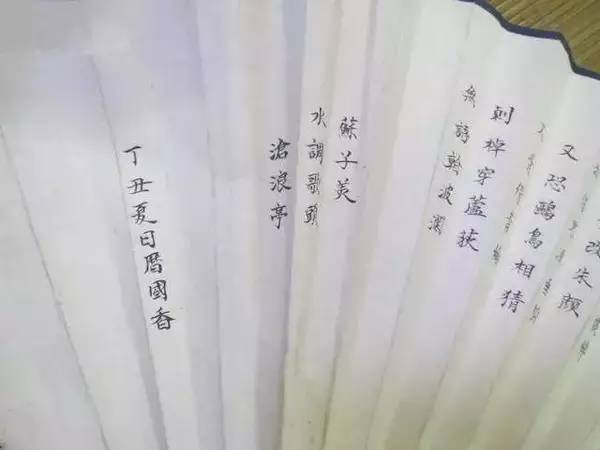 改朱顏
又恐鷗鳥相猜
不肯傍青綸
刺棹穿蘆荻
無語波瀾
蘇子美
水調歌頭
滄浪亭
丁丑夏日曆國香